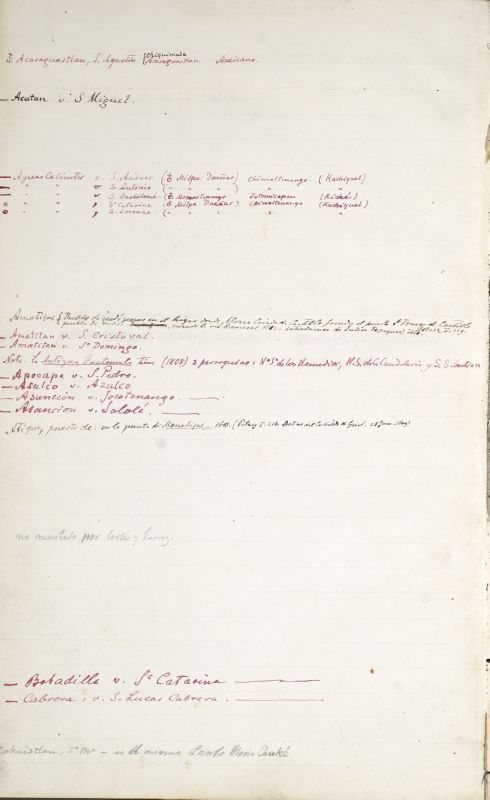 ♁ Acasaguastlan, S. Agustin { Chiquimula
Acasaguastlan. Mexicano.
— Acatan v. S Miguel.
— Aguas Calientes v. S. Andres. (♁ Milpa Dueñas) Chimaltenango. (Kachiquel)
— " " v S. Antonio. ( " " ) " "
— " " v S. Bartolomé (♁ Momostenango Totonicapan (Kiché)
o " " , Sta Catarina (♁ Milpa Dueñas) Chimaltenango (Kachiquel)
o " " , S. Lorenzo ( " " " "
Amatique { Pueblo de indígenas en el
pueblo de indios
— Amatitan v. S. Cristoval.
— Amatitan v. Sto Domingo.
Nota. La Antigua Guatemala tiene (1808) 3 parroquias: Na Sa de los Remedios, N. S. de Candelaria y S. Sebastian
— Apocapa v. S. Pedro.
— Asulco v. Azulco
— Asuncion v. Jocotenango. —
— Asuncion v. Sololá. —
Atique, puerto de: en la punta de Manabique, 1603.
no mentado por Cortés y Larraz.
— Bobadilla v. Sa Catarina —
— Cabrera, v. S. Lucas Cabrera. —
Sta Ma - es la misma Santa Maria